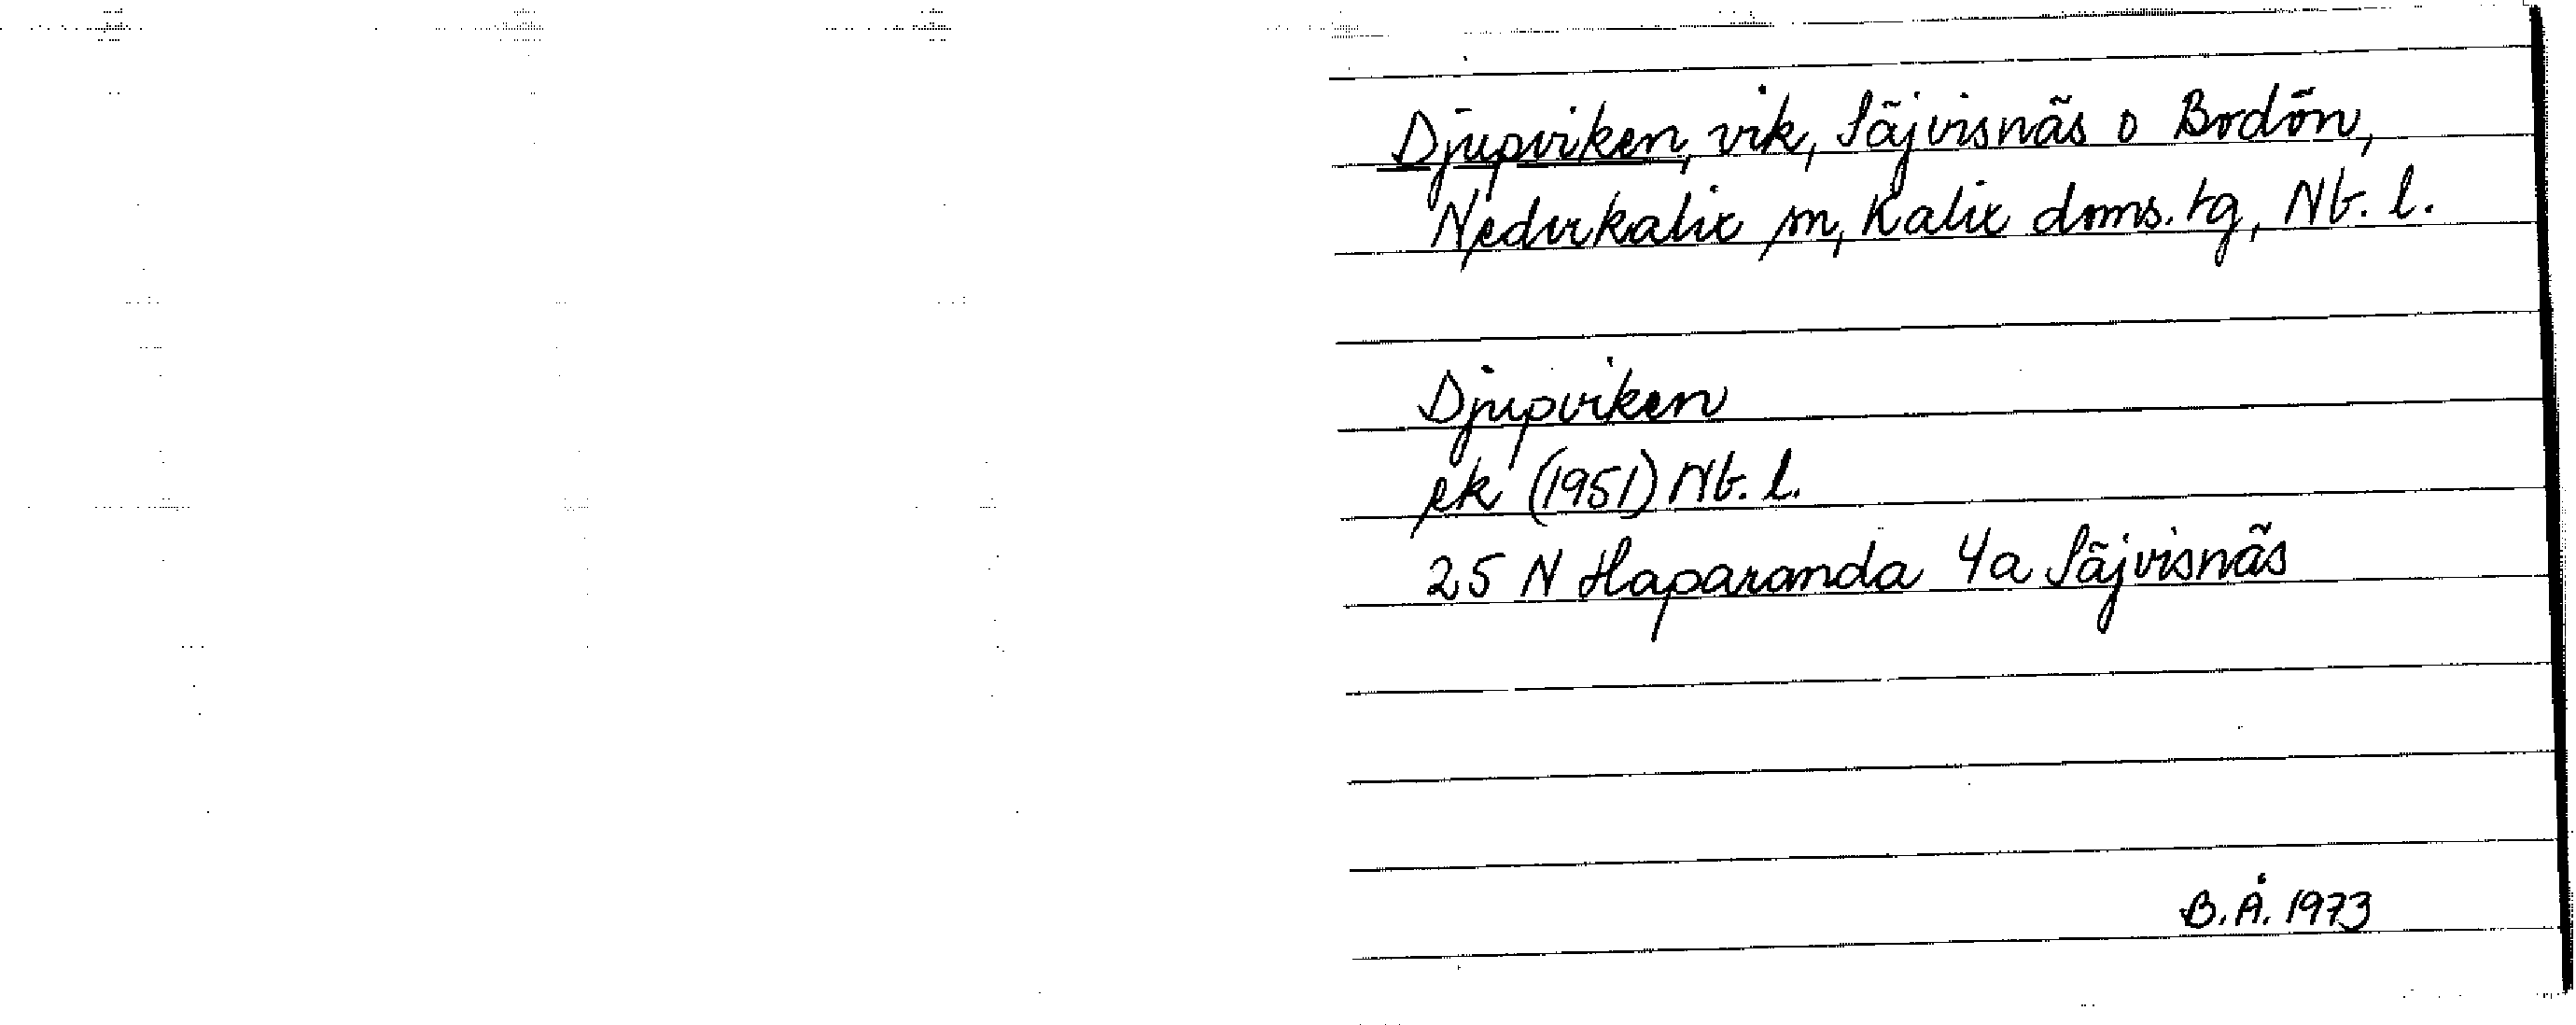 Djupviken, vik, Säjvisnäs o Bodön,
Nederkalix sn, Kalix doms. tg, Nb. l.
Djupviken
ek (1951) Nb. l.
25 N Haparanda 4a Säjvisnäs
B. Å. 1973